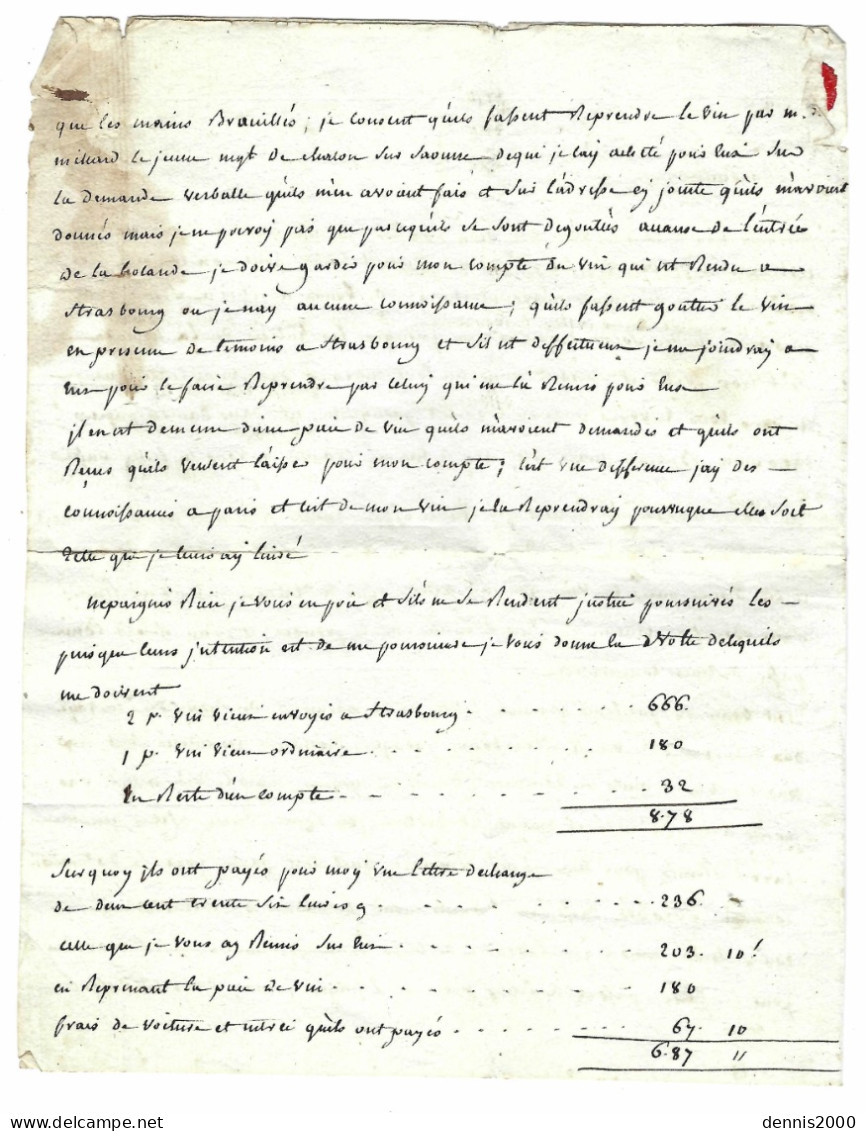 que les moins Brouillés; je consent qu'ils fassent Reprendre le vin par m. d.
millard le jeune mgt de chalon sur saonne dequi je lay acheté pour eux sur
la demande verballe qu'ils m'en avoient fais et sur l'adresse cy jointe qu'ils m'avoient
donnés mais je ne prevoy pas que parcequils se sont degoutés avansé de l'entrée
De la holande je doive gardés pour mon compte du vin qui est Rendu a
Strasbourg ou je n'ay aucune connoissance; qu'ils fassent goutter le vin
en presence de temoins a Strasbourg et s'il est deffectueux je me joindray a
eux pour le faire Reprendre par Celuy qui me l'a Remis pour eux
jl en est de meme d'une piece de vin qu'ils m'avoient demandés et qu'ils ont
Reçus qu'ils veulent laisser pour mon compte; c'est une difference jay des
connoissances a paris et c'est de mon vin je la Reprendray pourvuque elle soit
Telle que je leurs ay
nepargnés Rien je vous en prie et s'ils ne se Rendent justice poursuivés les
puisque leurs jntention est de me poursuivre je vous donne la Notte de ce quils
me doivent
2 p. vin vieux envoyés a Strasbourg. 666.
1 p. vin vieux ordinaire. 180
un Reste d'un compte. 32
8.78
Surquoy jls ont payés pour moy une lettre dechange
de deux cent trente six livres 236.
celle que je vous ay Remis sur eux. 203. 10 s
en Reprenant la piece de vin. 180
frais de voiture et qu'ils ont payés. 67. 10
6.87 "
dennis2000